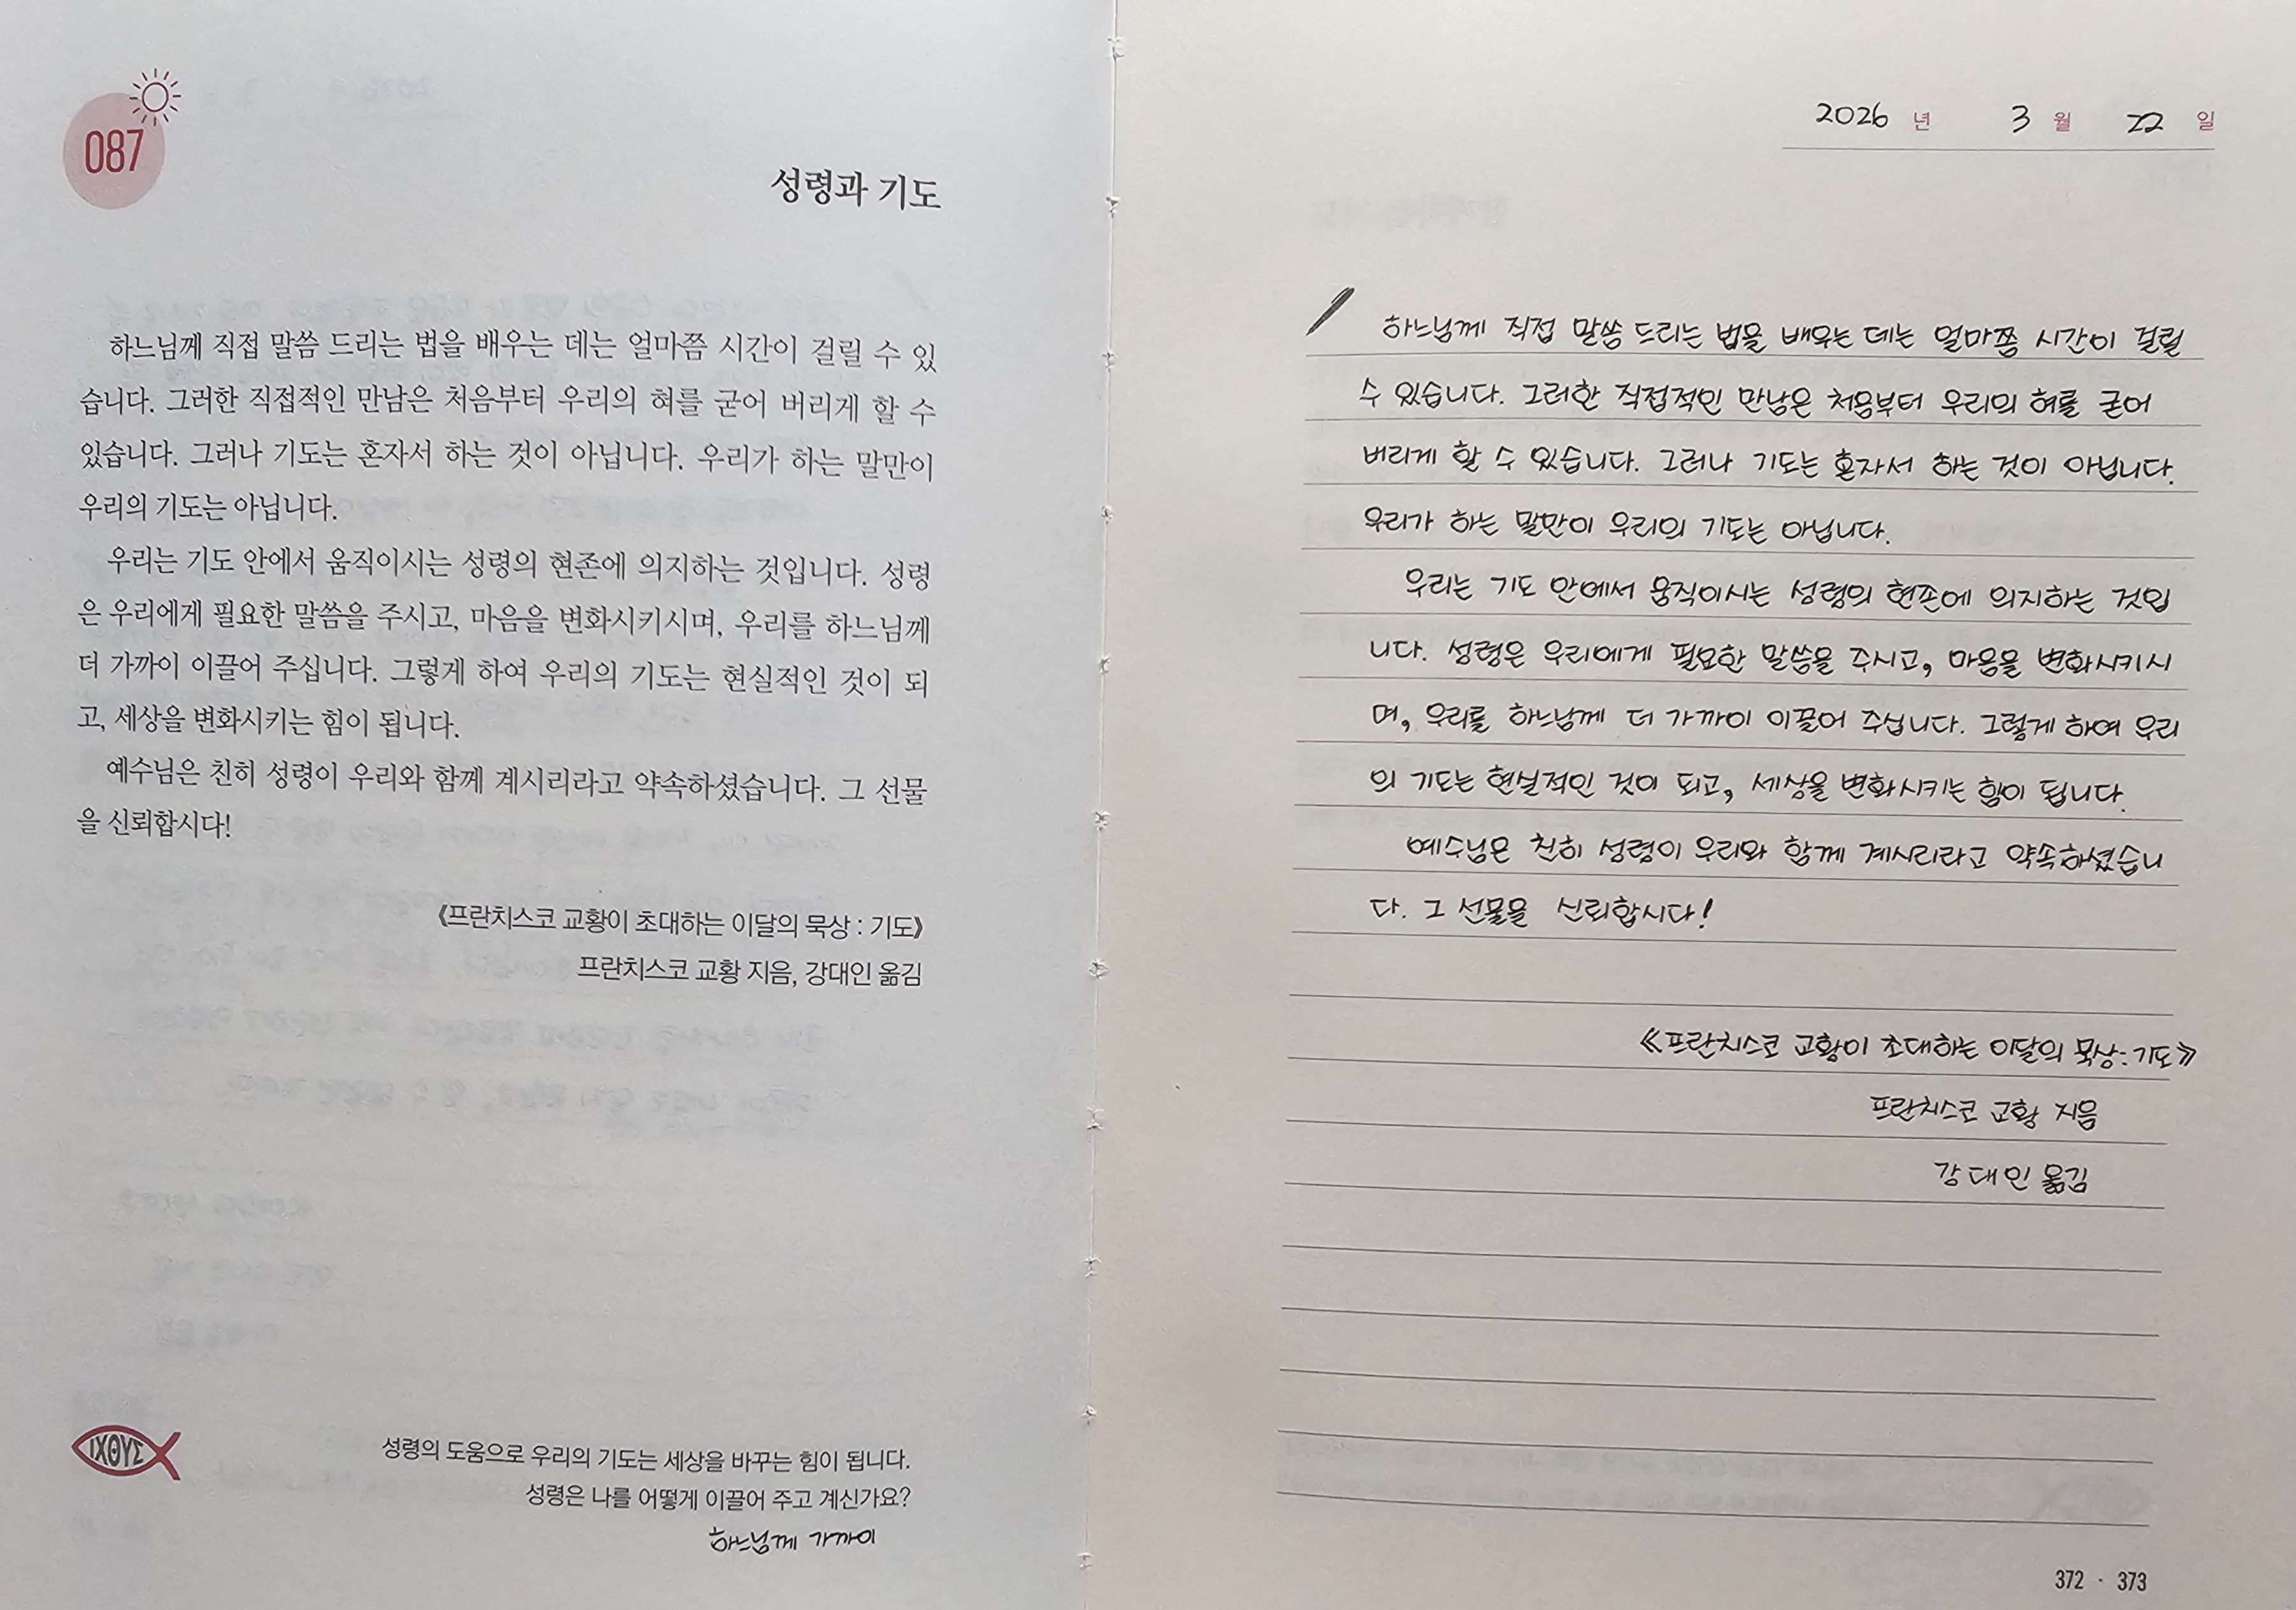 087
성령과 기도
하느님께 직접 말씀 드리는 법을 배우는 데는 얼마쯤 시간이 걸릴 수 있
습니다. 그러한 직접적인 만남은 처음부터 우리의 혀를 굳어 버리게 할 수
있습니다. 그러나 기도는 혼자서 하는 것이 아닙니다. 우리가 하는 말만이
우리의 기도는 아닙니다.
우리는 기도 안에서 움직이시는 성령의 현존에 의지하는 것입니다. 성령
은 우리에게 필요한 말씀을 주시고, 마음을 변화시키시며, 우리를 하느님께
더 가까이 이끌어 주십니다. 그렇게 하여 우리의 기도는 현실적인 것이 되
고, 세상을 변화시키는 힘이 됩니다.
예수님은 친히 성령이 우리와 함께 계시리라고 약속하셨습니다. 그 선물
을 신뢰합시다!
《프란치스코 교황이 초대하는 이달의 묵상 : 기도》
프란치스코 교황 지음, 강대인 옮김
ΙΧΘΥΣ
성령의 도움으로 우리의 기도는 세상을 바꾸는 힘이 됩니다.
성령은 나를 어떻게 이끌어 주고 계신가요?
하느님께 가까이
2026 년 3 월 22 일
하느님께 직접 말씀 드리는 법을 배우는 데는 얼마쯤 시간이 걸릴
수 있습니다. 그러한 직접적인 만남은 처음부터 우리의 혀를 굳어
버리게 할 수 있습니다. 그러나 기도는 혼자서 하는 것이 아닙니다.
우리가 하는 말만이 우리의 기도는 아닙니다.
우리는 기도 안에서 움직이시는 성령의 현존에 의지하는 것입
니다. 성령은 우리에게 필요한 말씀을 주시고, 마음을 변화시키시
며, 우리를 하느님께 더 가까이 이끌어 주십니다. 그렇게 하여 우리
의 기도는 현실적인 것이 되고, 세상을 변화시키는 힘이 됩니다.
예수님은 친히 성령이 우리와 함께 계시리라고 약속하셨습니
다. 그 선물을 신뢰합시다!
《프란치스코 교황이 초대하는 이달의 묵상:기도》
프란치스코 교황 지음
강대인 옮김
372 · 373